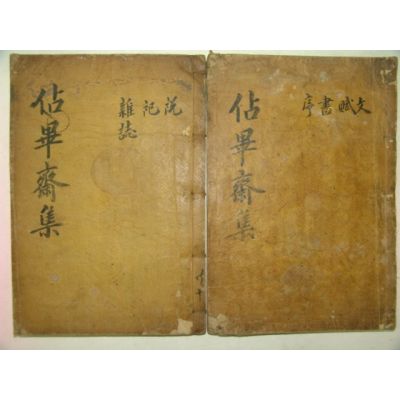 文賦書序
佔畢齋集
說
記
雜誌
佔畢齋集